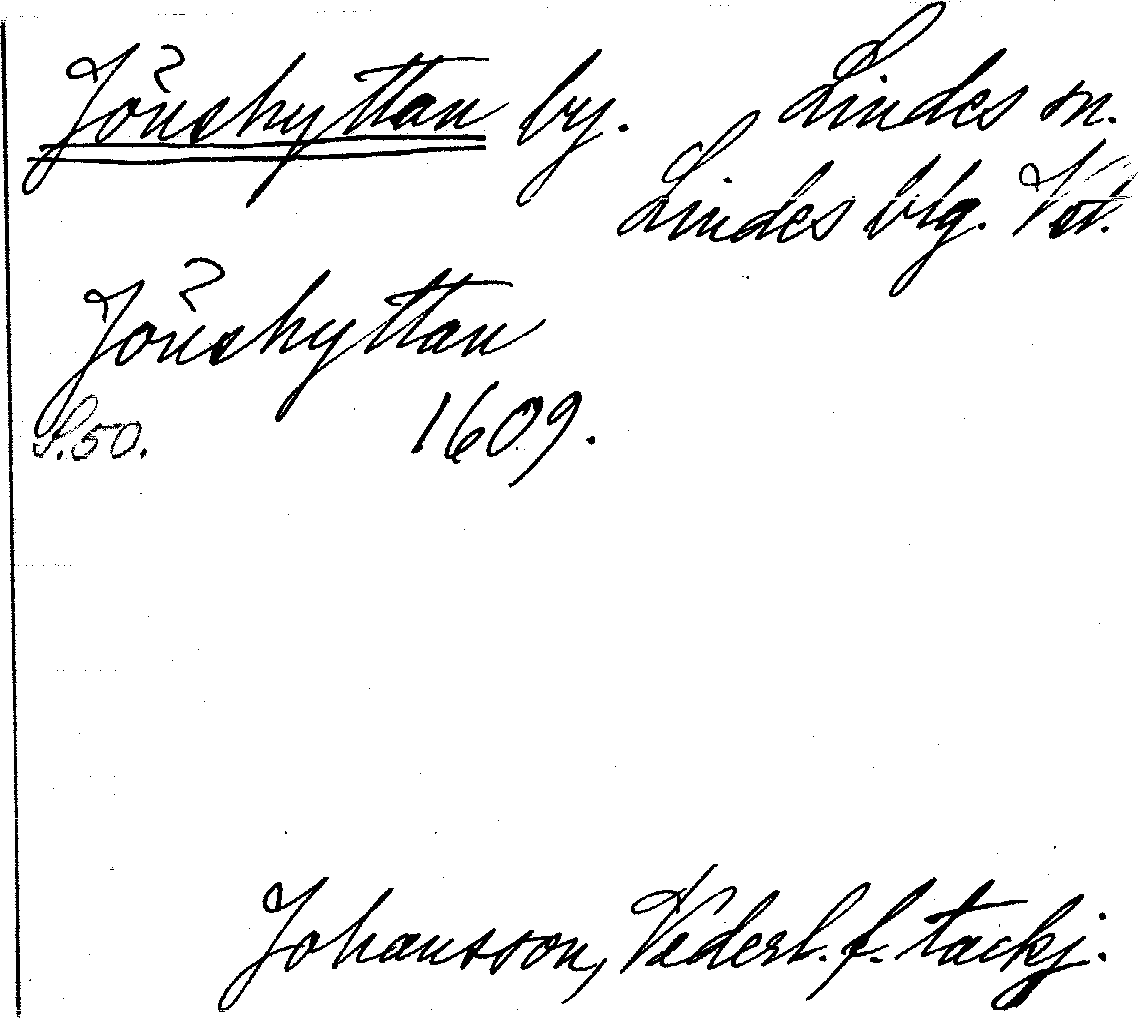 Jönshyttan by. Lindes sn.
Lindes blg. Vstl.
Jönshyttan
S.50. 1609.
Johansson, Vederl. f. tackj.